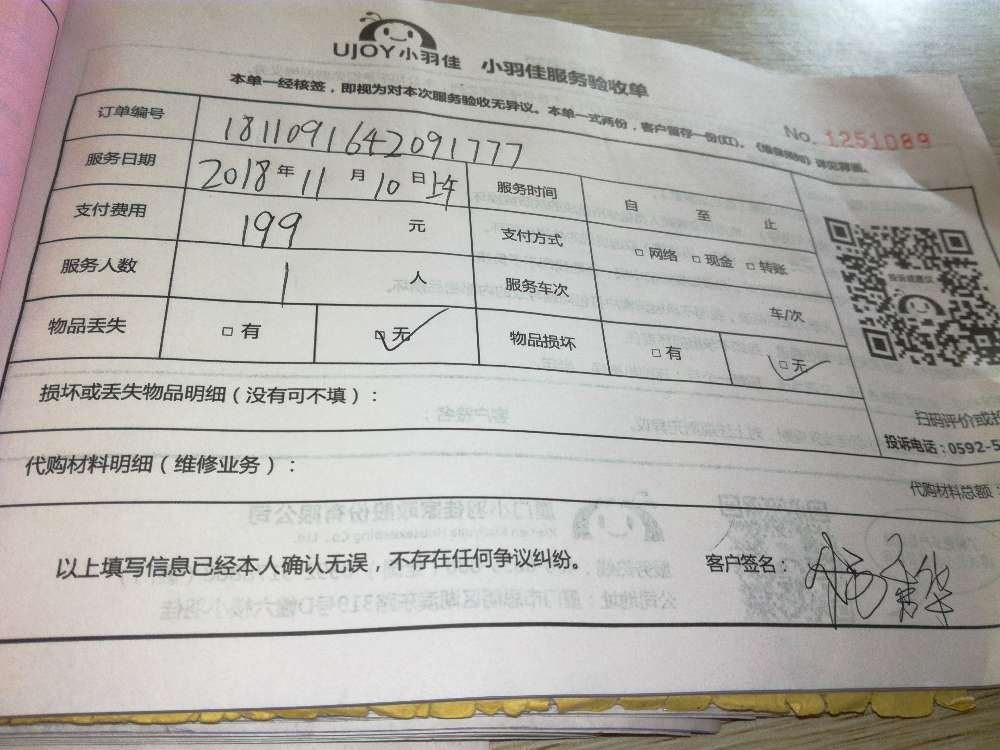 UJOY小羽佳 小羽佳服务验收单
本单一经核签，即视为对本次服务验收无异议。本单一式两份，客户留存一份(红)。
No. 1251089
订单编号 1811091642091777
服务日期 2018年11月10日上午 服务时间 自 至 止
支付费用 199 元 支付方式 □网络 □现金 □转账
服务人数 1 人 服务车次 车/次
物品丢失 □有 □无 物品损坏 □有 □无
扫码评价或
损坏或丢失物品明细（没有可不填）：
投诉电话：0592-5
代购材料明细（维修业务）：
代购材料总额：
以上填写信息已经本人确认无误，不存在任何争议纠纷。 客户签名：